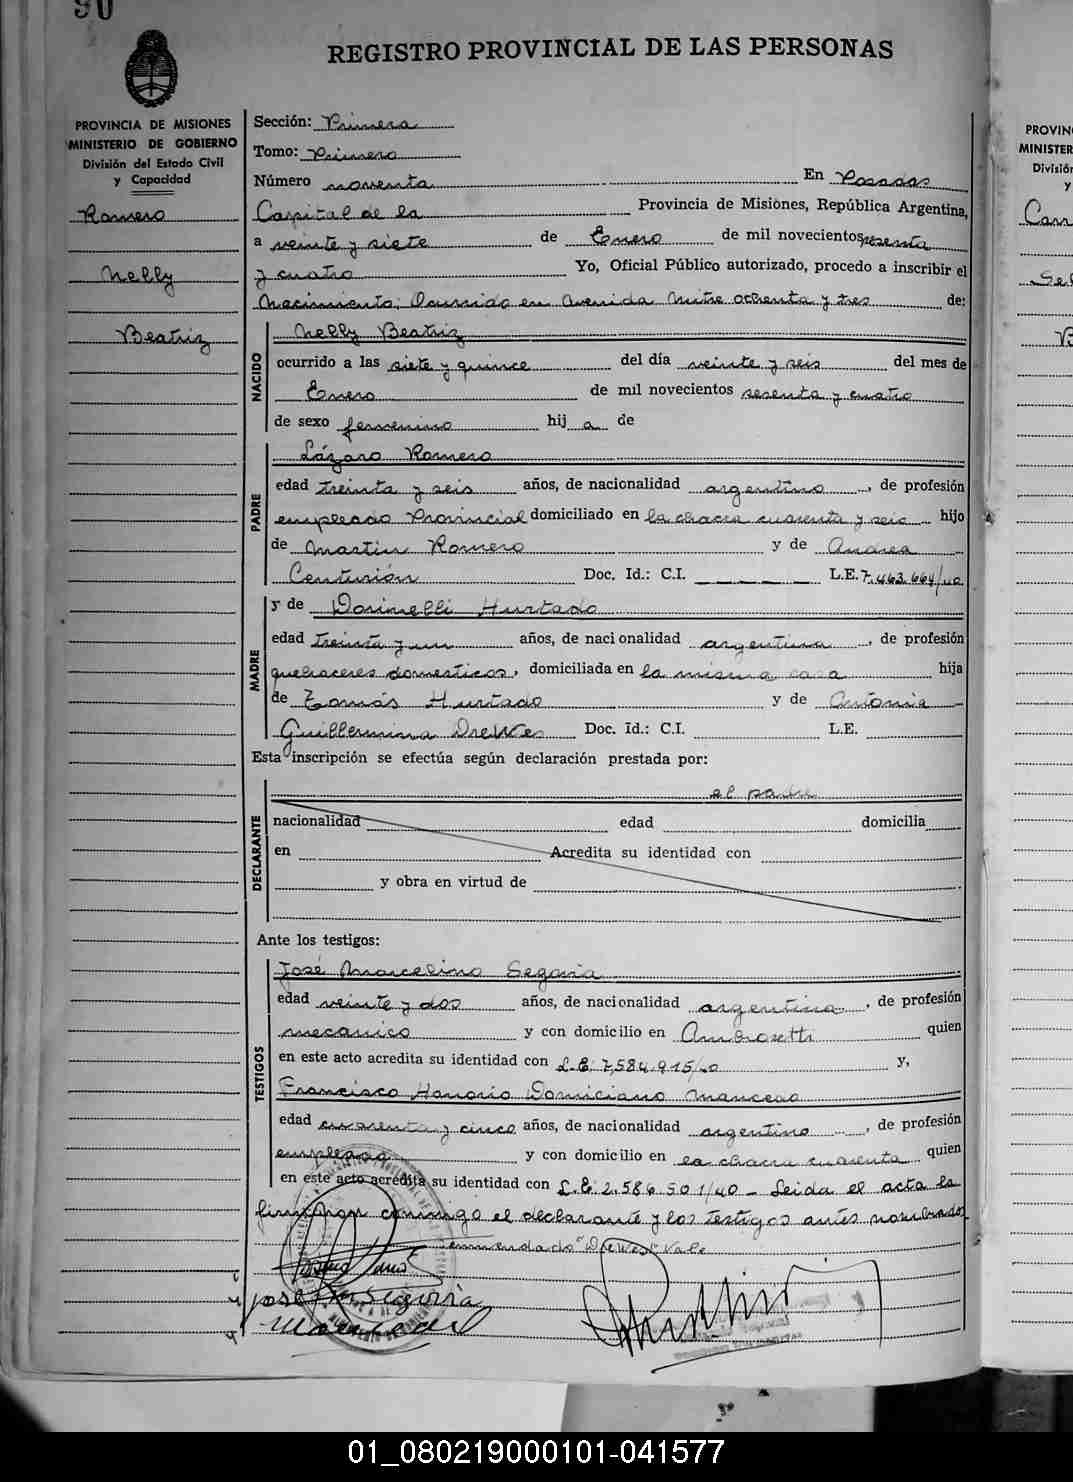 90
REGISTRO PROVINCIAL DE LAS PERSONAS
PROVINCIA DE MISIONES
MINISTERIO DE GOBIERNO
División del Estado Civil
y Capacidad
Romero
Nelly
Beatriz
Sección: Primera
Tomo: Primero
Número noventa En Posadas
Capital de la Provincia de Misiones, República Argentina,
a veinte y siete de Enero de mil novecientos sesenta
y cuatro Yo, Oficial Público autorizado, procedo a inscribir el
Nacimiento; Ocurrido en Avenida Mitre ochenta y tres de:
NACIDO
Nelly Beatriz
ocurrido a las siete y quince del día veinte y seis del mes de
Enero de mil novecientos sesenta y cuatro
de sexo femenino hij a de
PADRE
Lázaro Romero
edad treinta y seis años, de nacionalidad argentino, de profesión
empleado Provincial domiciliado en la chacra cuarenta y seis hijo
de Martin Romero y de Andrea
Centurión Doc. Id.: C.I. L.E. 7.463.664/40
MADRE
y de Dorinelli Hurtado
edad treinta y un años, de nacionalidad argentina, de profesión
quehaceres domesticos, domiciliada en la misma casa hija
de Tomás Hurtado y de Antonia
Guillermina Drewes Doc. Id.: C.I. L.E.
Esta inscripción se efectúa según declaración prestada por:
DECLARANTE
el padre
nacionalidad edad domicilia
en Acredita su identidad con
y obra en virtud de
Ante los testigos:
TESTIGOS
José Marcelino Segovia
edad veinte y dos años, de nacionalidad argentina, de profesión
mecanico y con domicilio en Ambrosetti quien
en este acto acredita su identidad con L.E. 7.584.915/40 y,
Francisco Honorio Domiciano Mancedo
edad cuarenta y cinco años, de nacionalidad argentino, de profesión
empleado y con domicilio en la chacra cuarenta quien
en este acto acredita su identidad con L.E. 2.586.501/40 - Leida el acta la
firmaron conmigo el declarante y los testigos antes nombrados
enmendado "Drewes" Vale
José M Segovia
PROVIN
MINISTER
División
y
01_080219000101-041577